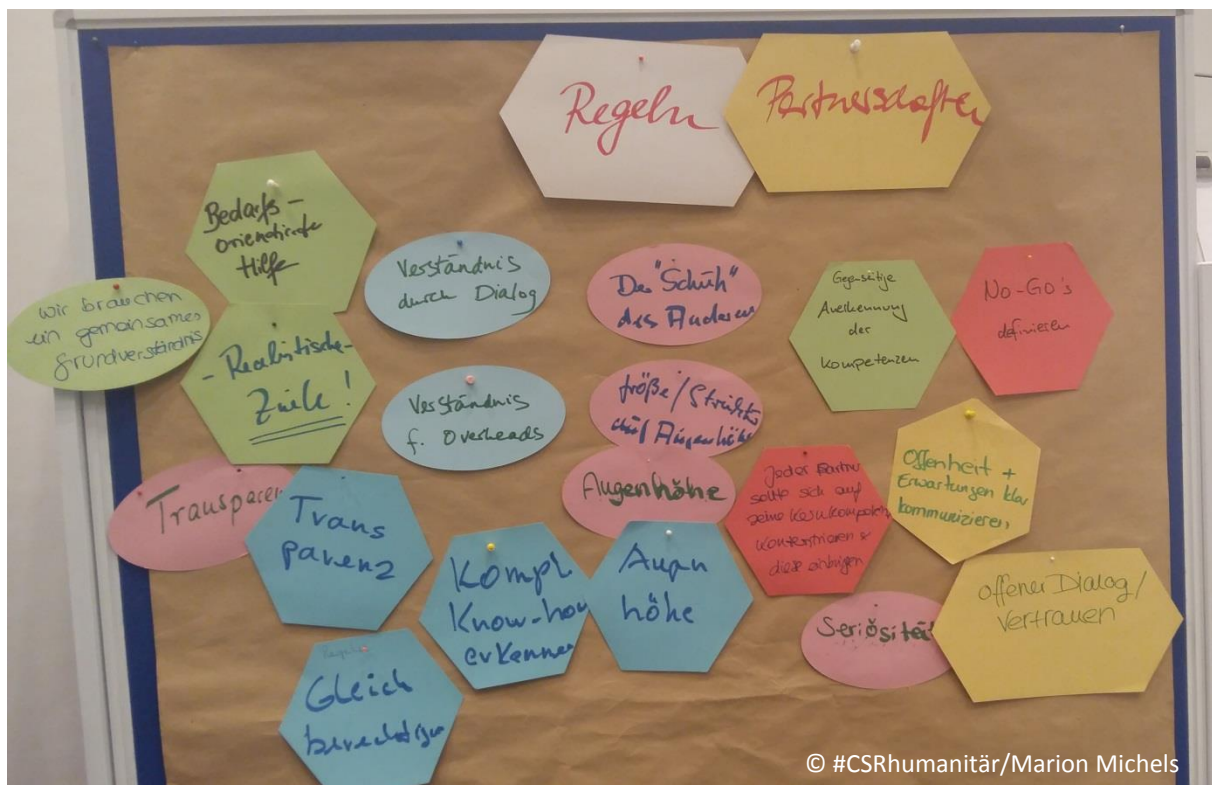 Regeln
Partnerschaften
Bedarfs-
orientierte
Hilfe
Wir brauchen
ein gemeinsames
Grundverständnis
- Realistische -
Ziele!
Verständnis
durch Dialog
Verständnis
f. Overheads
Der "Schuh"
des Anderen
Größe/Struktur
auf Augenhöhe
Augenhöhe
Gegenseitige
Anerkennung
der
Kompetenzen
No-Go's
definieren
Offenheit +
Erwartungen klar
kommunizieren
Jeder Partner
sollte sich auf
seine Kernkompetenz
konzentrieren &
diese einbringen
Transparen
Trans
parenz
Kompl.
Know-how
erkennen
Augen
höhe
Seriösität
offener Dialog/
Vertrauen
Regeln
Gleich
berechtigung
© #CSRhumanitär/Marion Michels